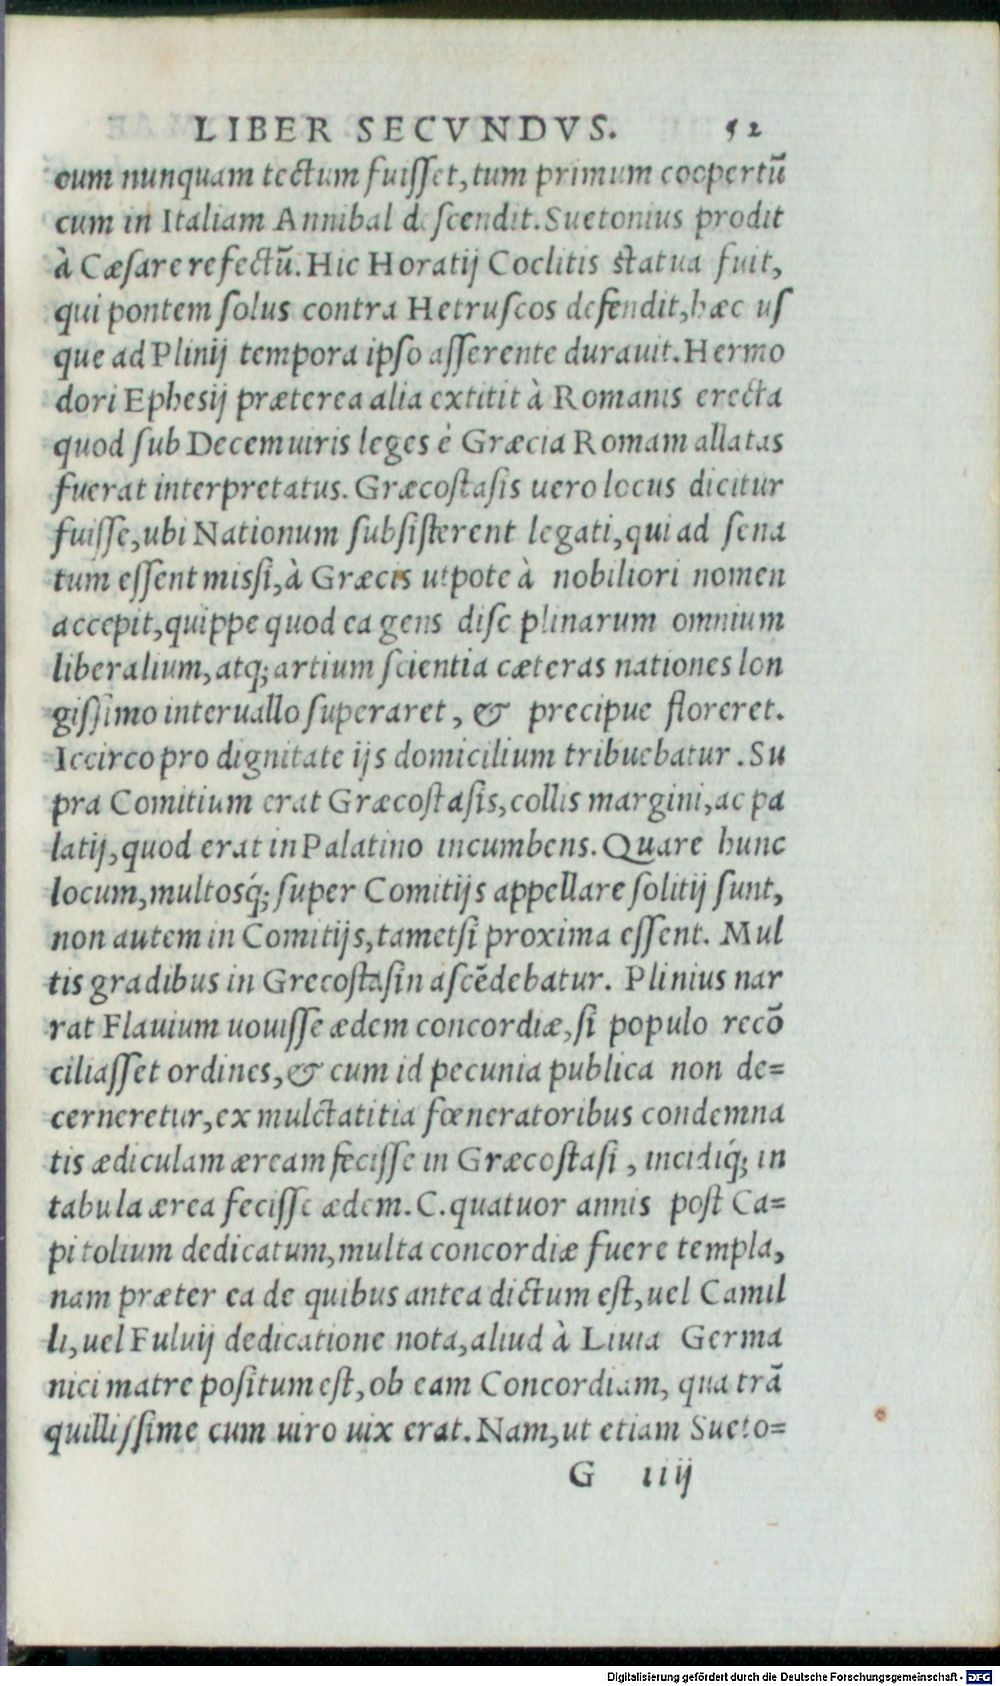 LIBER SECVNDVS. 52
cum nunquam tectum fuiſſet, tum primum coopertũ
cum in Italiam Annibal deſcendit. Suetonius prodit
à Cæſare refectũ. Hic Horatij Coclitis ſtatua fuit,
qui pontem ſolus contra Hetruſcos defendit, hæc uſ
que ad Plinij tempora ipſo aſſerente durauit. Hermo
dori Epheſij præterea alia extitit à Romanis erecta
quod ſub Decemuiris leges è Græcia Romam allatas
fuerat interpretatus. Græcoſtaſis uero locus dicitur
fuiſſe, ubi Nationum ſubſiſterent legati, qui ad ſena
tum eſſent miſſi, à Græcis utpote à nobiliori nomen
accepit, quippe quod ea gens diſciplinarum omnium
liberalium, atq; artium ſcientia cæteras nationes lon
giſſimo interuallo ſuperaret, & precipue floreret.
Iccirco pro dignitate ijs domicilium tribuebatur. Su
pra Comitium erat Græcoſtaſis, collis margini, ac pa
latij, quod erat in Palatino incumbens. Quare hunc
locum, multosq́; ſuper Comitijs appellare ſolitij ſunt,
non autem in Comitijs, tametſi proxima eſſent. Mul
tis gradibus in Grecoſtaſin aſcẽdebatur. Plinius nar
rat Flauium uouiſſe ædem concordiæ, ſi populo recõ
ciliaſſet ordines, & cum id pecunia publica non de=
cerneretur, ex mulctatitia fœneratoribus condemna
tis ædiculam æream feciſſe in Græcoſtaſi, incidiq́; in
tabula ærea feciſſe ædem. C. quatuor annis poſt Ca=
pitolium dedicatum, multa concordiæ fuere templa,
nam præter ea de quibus antea dictum eſt, uel Camil
li, uel Fuluij dedicatione nota, aliud à Liuia Germa
nici matre poſitum eſt, ob eam Concordiam, qua trã
quilliſſime cum uiro uix erat. Nam, ut etiam Sueto=
G iiij
Digitalisierung gefördert durch die Deutsche Forschungsgemeinschaft - DFG